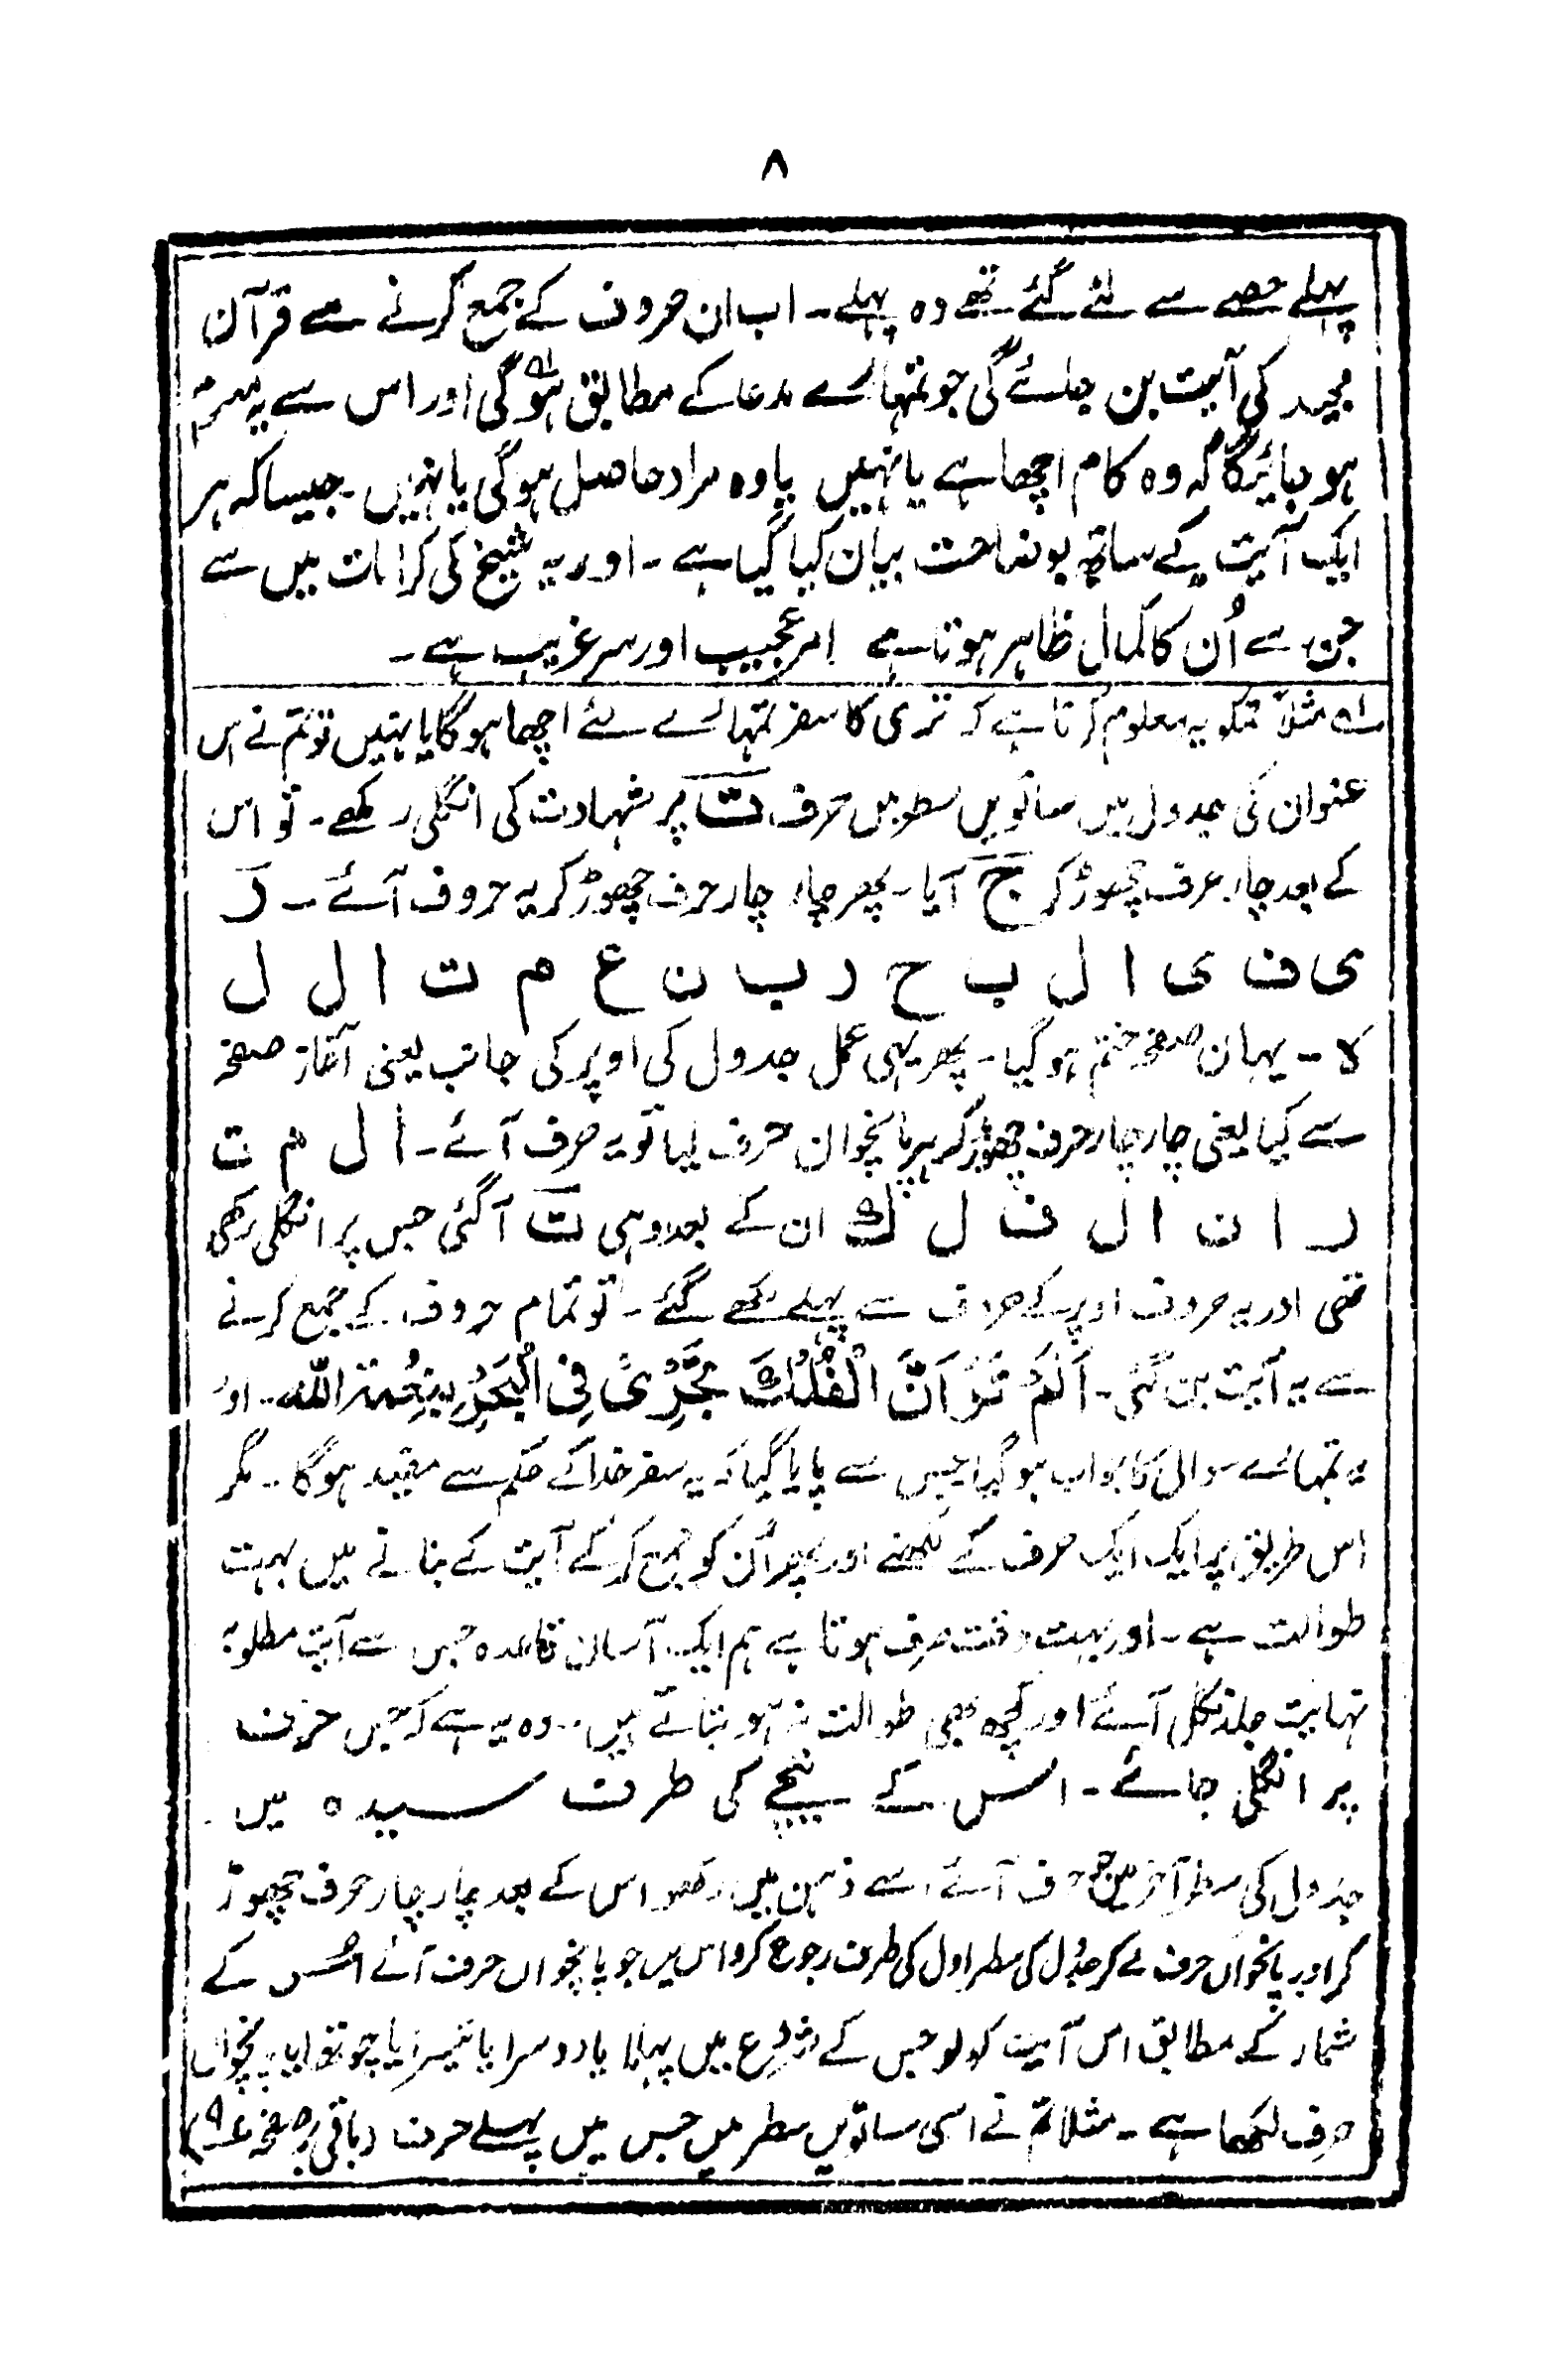 ۸
پہلے حصے سے لئے گئے تھے وہ پہلے۔ اب ان حروف کے جمع کرنے سے قرآن
مجید کی آیت بن جائے گی جو تمہارے مدعا کے مطابق ہوگی اور اس سے یہ
ہو جائیگا کہ وہ کام اچھا ہے یا نہیں یا وہ مراد حاصل ہوگی یا نہیں۔ جیسا کہ ہر
ایک آیت کے ساتھ بوضاحت بیان کیا گیا ہے۔ اور یہ شیخ کی کرامات میں سے
جن سے اُن کا کمال ظاہر ہوتا ہے امر عجیب اور سر غریب ہے۔
لہ مثلاً تمکو یہ معلوم کرنا ہے کہ تری کا سفر تمہارے لئے اچھا ہوگا یا نہیں تو تم نے اس
عنوان کی جدول میں ساتویں سطر میں حرف ت پر شہادت کی انگلی رکھے۔ تو اس
کے بعد چار حرف چھوڑ کر ج آیا۔ پھر چار چار حرف چھوڑ کر یہ حروف آئے۔ ر
ی ف ی ا ل ب ح ر ب ن ع م ت ا ل ل
ہ۔ یہان صفحہ ختم ہوگیا۔ پھر یہی عمل جدول کی اوپر کی جانب یعنی آغاز صفحہ
سے کیا یعنی چار چار حرف چھوڑ کر ہر پانچوان حرف لیا تو یہ حرف آئے۔ ا ل م ت
ر ا ن ا ل ف ل ك ان کے بعد وہی ت آگئی جس پر انگلی رکھی
تھی اور یہ حروف اوپر کے حروف سے پہلے رکھے گئے۔ تو تمام حروف کے جمع کرنے
سے یہ آیت بن گئی۔ اَلَمْ تَرَ اَنَّ الْفُلْكَ تَجْرِیْ فِی الْبَحْرِ بِنِعْمَةِ اللّٰہ۔ اور
یہ تمہارے سوال کا جواب ہوگیا جس سے پایا گیا کہ یہ سفر خدا کے حکم سے مفید ہوگا۔ مگر
اس طریق پر ایک ایک حرف کے لکھنے اور پھر اُن کو جمع کرکے آیت کے بنانے میں بہت
طوالت ہے۔ اور بہت وقت صرف ہوتا ہے ہم ایک آسان قاعدہ جس سے آیت مطلوبہ
نہایت جلد نکل آئے اور کچھ بھی طوالت نہ ہو بتاتے ہیں۔ وہ یہ ہے کہ جس حرف
پر انگلی جائے۔ اس کے نیچے کی طرف سیدہ میں
جدول کی سطر آخر میں جو حرف آئے اسے ذہن میں رکھو اس کے بعد چار چار حرف چھوڑ
کر اور پانچواں حرف لے کر جدول کی سطر اول کی طرف رجوع کرو اس میں جو پانچواں حرف آئے اُس کے
شمار کے مطابق اس آیت کو لو جس کے شروع میں پہلا یا دوسرا یا تیسرا یا چوتھا یا پانچواں
حرف لکھا ہے۔ مثلاً تم نے اسی ساتویں سطر میں جس میں پہلے حرف (باقی بر صفحہ ۹)